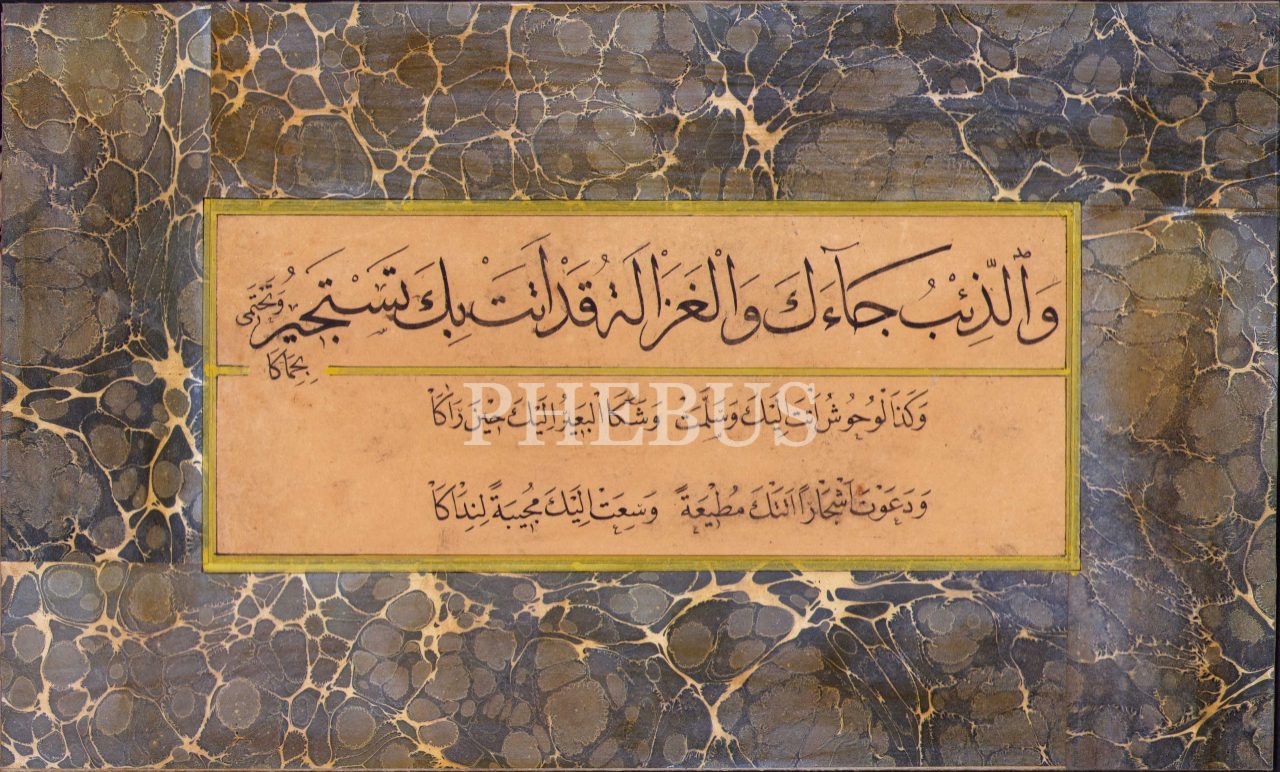 وَالذِّئْبُ جَآءَكَ وَالْغَزَالَةُ قَدْ اَتَتْ بِكَ تَسْتَجِيرُ وَتَحْتَمِى
بِحِمَاكَا
وَكَذَا لْوُحُوشُ اَتَتْ اِلَيْكَ وَسَلَّمَتْ وَشَكَا الْبَعِيرُ اِلَيْكَ حِينَ رَاٰكَا
PHEBUS
وَدَعَوْتَ اَشْجَارًا اَتَتْكَ مُطِيعَةً وَسَعَتْ اِلَيْكَ مُجِيبَةً لِنِدَاكَا